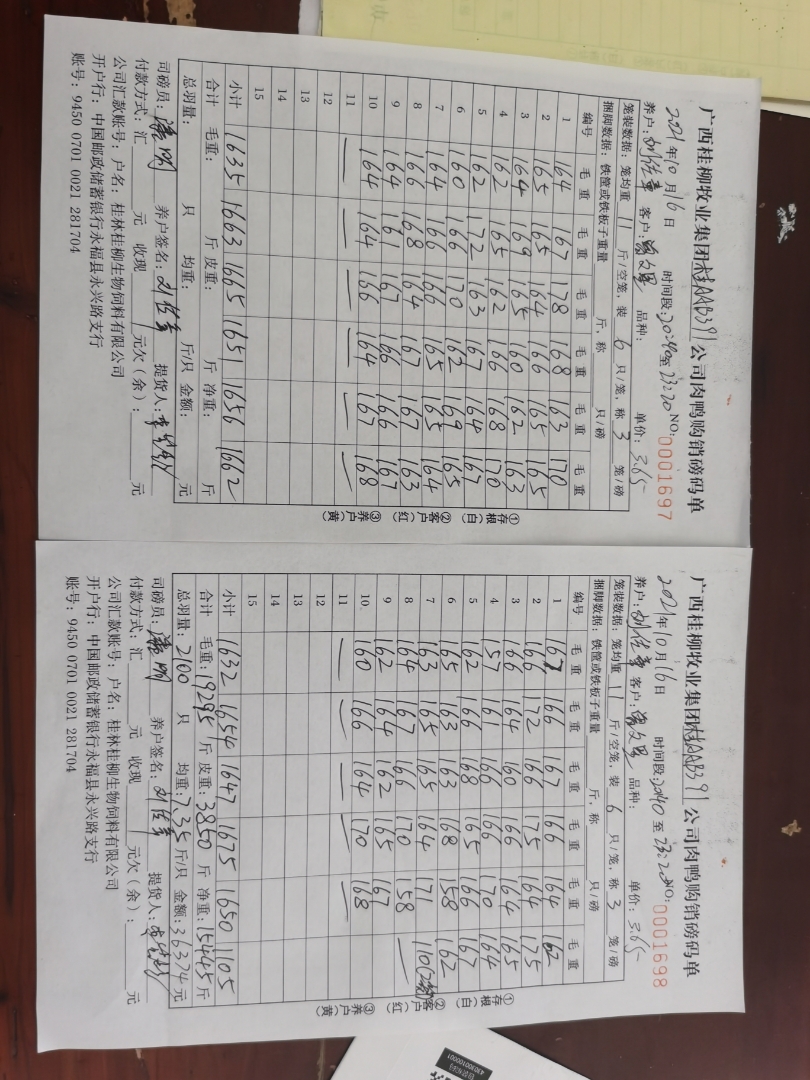 广西桂柳牧业集团桂AAB391公司肉鸭购销磅码单
2021年10月16日 时间段:20:40至23:20 NO: 0001697
养户: 客户: 品种: 单价: 3.65
笼装数据: 笼均重 11 斤/空笼, 装 6 只/笼, 称 3 笼/磅
捆脚数据: 铁筐或铁板子重量 斤, 称 只/磅
编号 毛重 毛重 毛重 毛重 毛重 毛重
1 164 167 178 168 163 170
2 165 165 164 166 165 165
3 164 169 165 160 162 163
4 162 165 162 166 168 170
5 162 172 163 167 164 167
6 160 166 170 162 169 165
7 164 166 166 165 165 164
8 166 168 164 167 167 163
9 164 161 167 166 166 167
10 164 164 166 164 167 168
11 — — — — —
12
13
14
15
小计 1635 1663 1665 1651 1656 1662
合计 毛重: 斤 皮重: 斤 净重: 斤
总羽量: 只 均重: 斤/只 金额: 元
司磅员: 养户签名: 提货人:
付款方式: 汇 元 收现 元欠(余): 元
公司汇款账号: 户名: 桂林桂柳生物饲料有限公司
开户行: 中国邮政储蓄银行永福县永兴路支行
账号: 9450 0701 0021 281704
①存根(白) ②客户(红) ③养户(黄)
广西桂柳牧业集团桂AAB391公司肉鸭购销磅码单
2021年10月16日 时间段:20:40至23:20 NO: 0001698
养户: 客户: 品种: 单价: 3.65
笼装数据: 笼均重 11 斤/空笼, 装 6 只/笼, 称 3 笼/磅
捆脚数据: 铁筐或铁板子重量 斤, 称 只/磅
编号 毛重 毛重 毛重 毛重 毛重 毛重
1 167 166 167 166 164 162
2 166 172 166 175 164 175
3 166 164 160 166 164 165
4 157 161 166 166 170 164
5 162 166 168 165 166 167
6 165 163 163 168 158 162
7 163 165 165 164 171 110(2笼)
8 164 167 166 170 158 —
9 162 164 162 165 167
10 160 166 164 170 168
11 — — — — —
12
13
14
15
小计 1632 1654 1647 1675 1650 1105
合计 毛重: 19295 斤 皮重: 3850 斤 净重: 15445 斤
总羽量: 2100 只 均重: 7.35 斤/只 金额: 36374 元
司磅员: 养户签名: 提货人:
付款方式: 汇 元 收现 元欠(余): 元
公司汇款账号: 户名: 桂林桂柳生物饲料有限公司
开户行: 中国邮政储蓄银行永福县永兴路支行
账号: 9450 0701 0021 281704
①存根(白) ②客户(红) ③养户(黄)